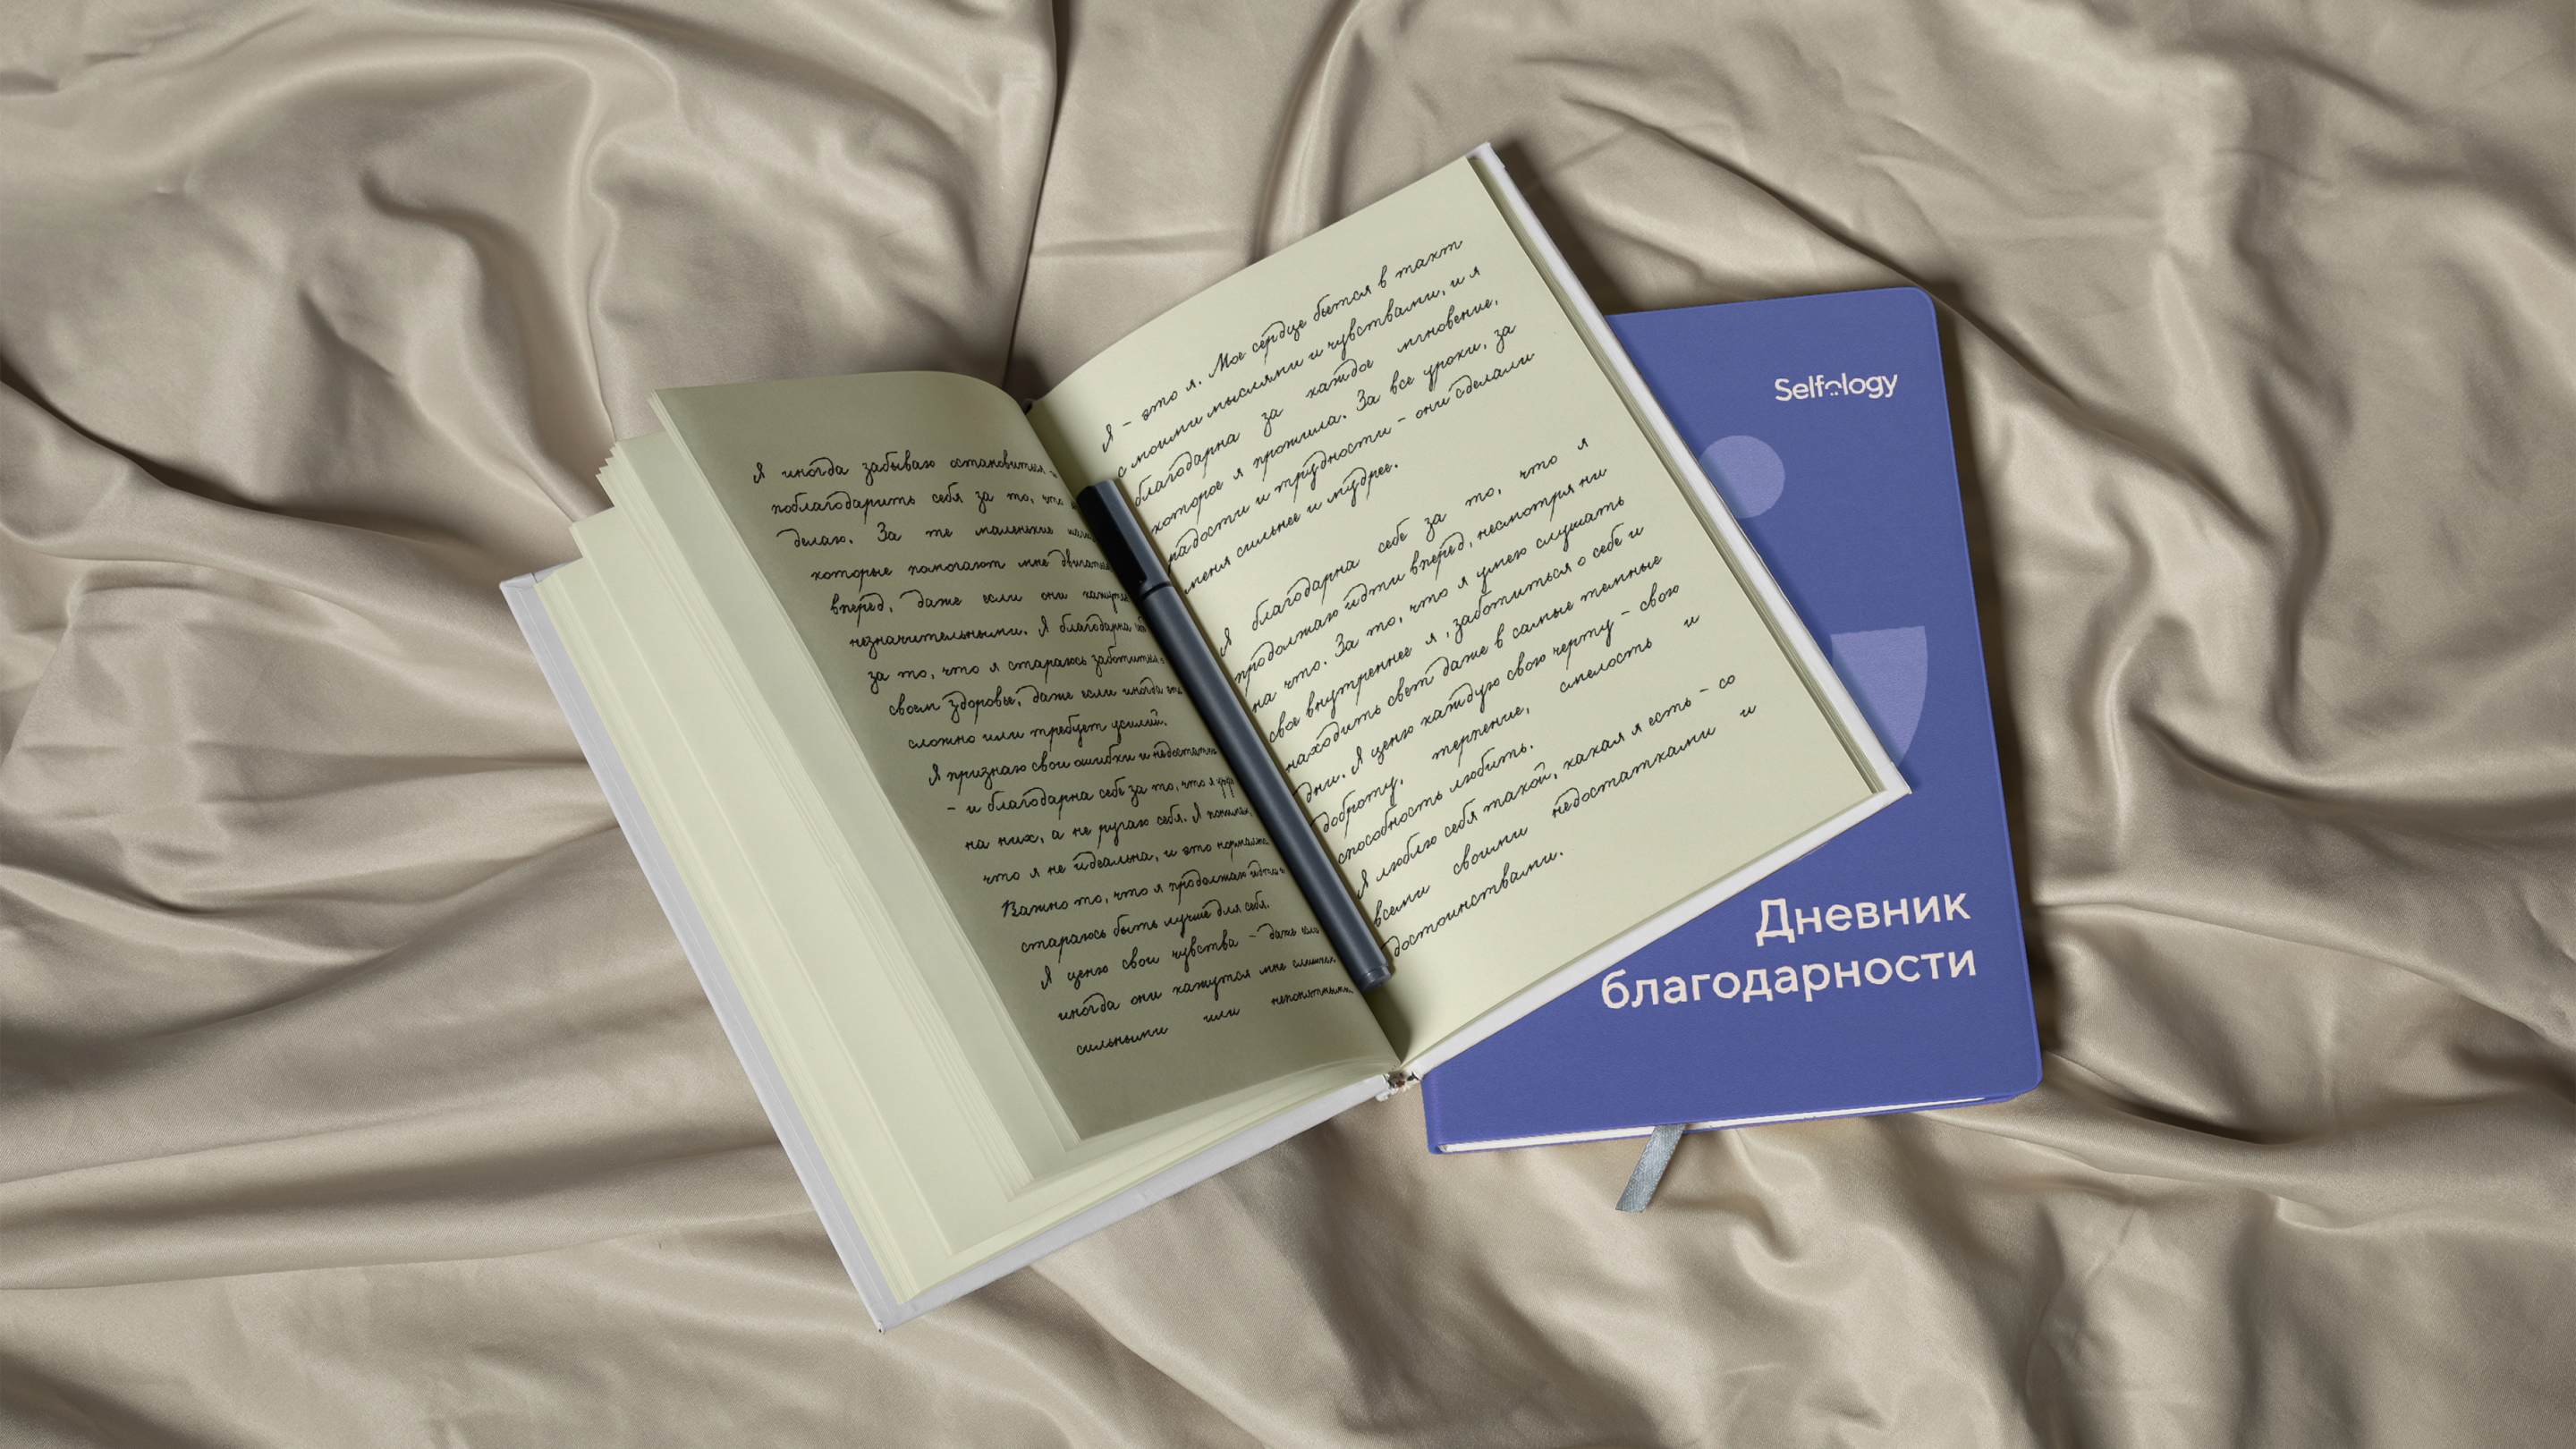 Я иногда забываю остановиться и
поблагодарить себя за то, что
делаю. За те маленькие
которые помогают мне двигаться
вперед, даже если они кажутся
незначительными. Я благодарна
за то, что я стараюсь заботиться о
своем здоровье, даже если иногда это
сложно или требует усилий.
Я признаю свои ошибки и недостатки
– и благодарна себе за то, что я
на них, а не ругаю себя. Я понимаю,
что я не идеальна, и это нормально.
Важно то, что я продолжаю идти и
стараюсь быть лучше для себя.
Я ценю свои чувства – даже если
иногда они кажутся мне слишком
сильными или непонятными.
Я – это я. Мое сердце бьется в такт
с моими мыслями и чувствами, и я
благодарна за каждое мгновение,
которое я прожила. За все уроки, за
радости и трудности – они сделали
меня сильнее и мудрее.
Я благодарна себе за то, что я
продолжаю идти вперед, несмотря ни
на что. За то, что я умею слушать
свое внутреннее я, заботиться о себе и
находить свет даже в самые темные
дни. Я ценю каждую свою черту – свою
доброту, терпение, смелость и
способность любить.
Я люблю себя такой, какая я есть – со
всеми своими недостатками и
достоинствами.
Selfology
Дневник
благодарности